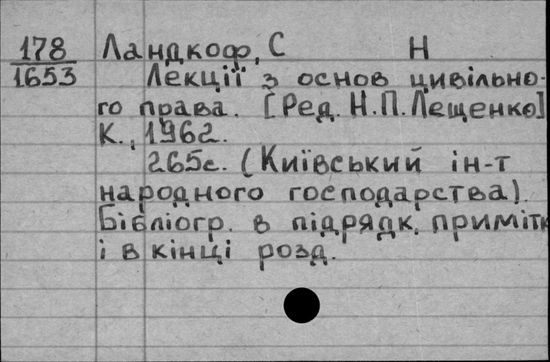 178 Ландкоф, С Н
1653 Лекції з основ цивільно-
го права. [Ред. Н.П.Лещенко]
К., 1962.
265с. (Київський ін-т
народного господарства).
Бібліогр. в підрядк. примітк
і в кінці розд.